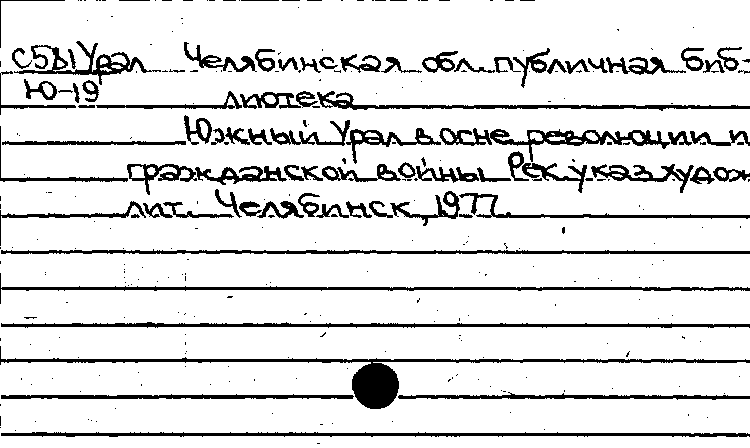 С5(2)Урал Челябинская обл. публичная биб-
Ю-19 лиотека
Южный Урал в огне революции и
гражданской войны. Рек. указ. худож.
лит. Челябинск, 1977.